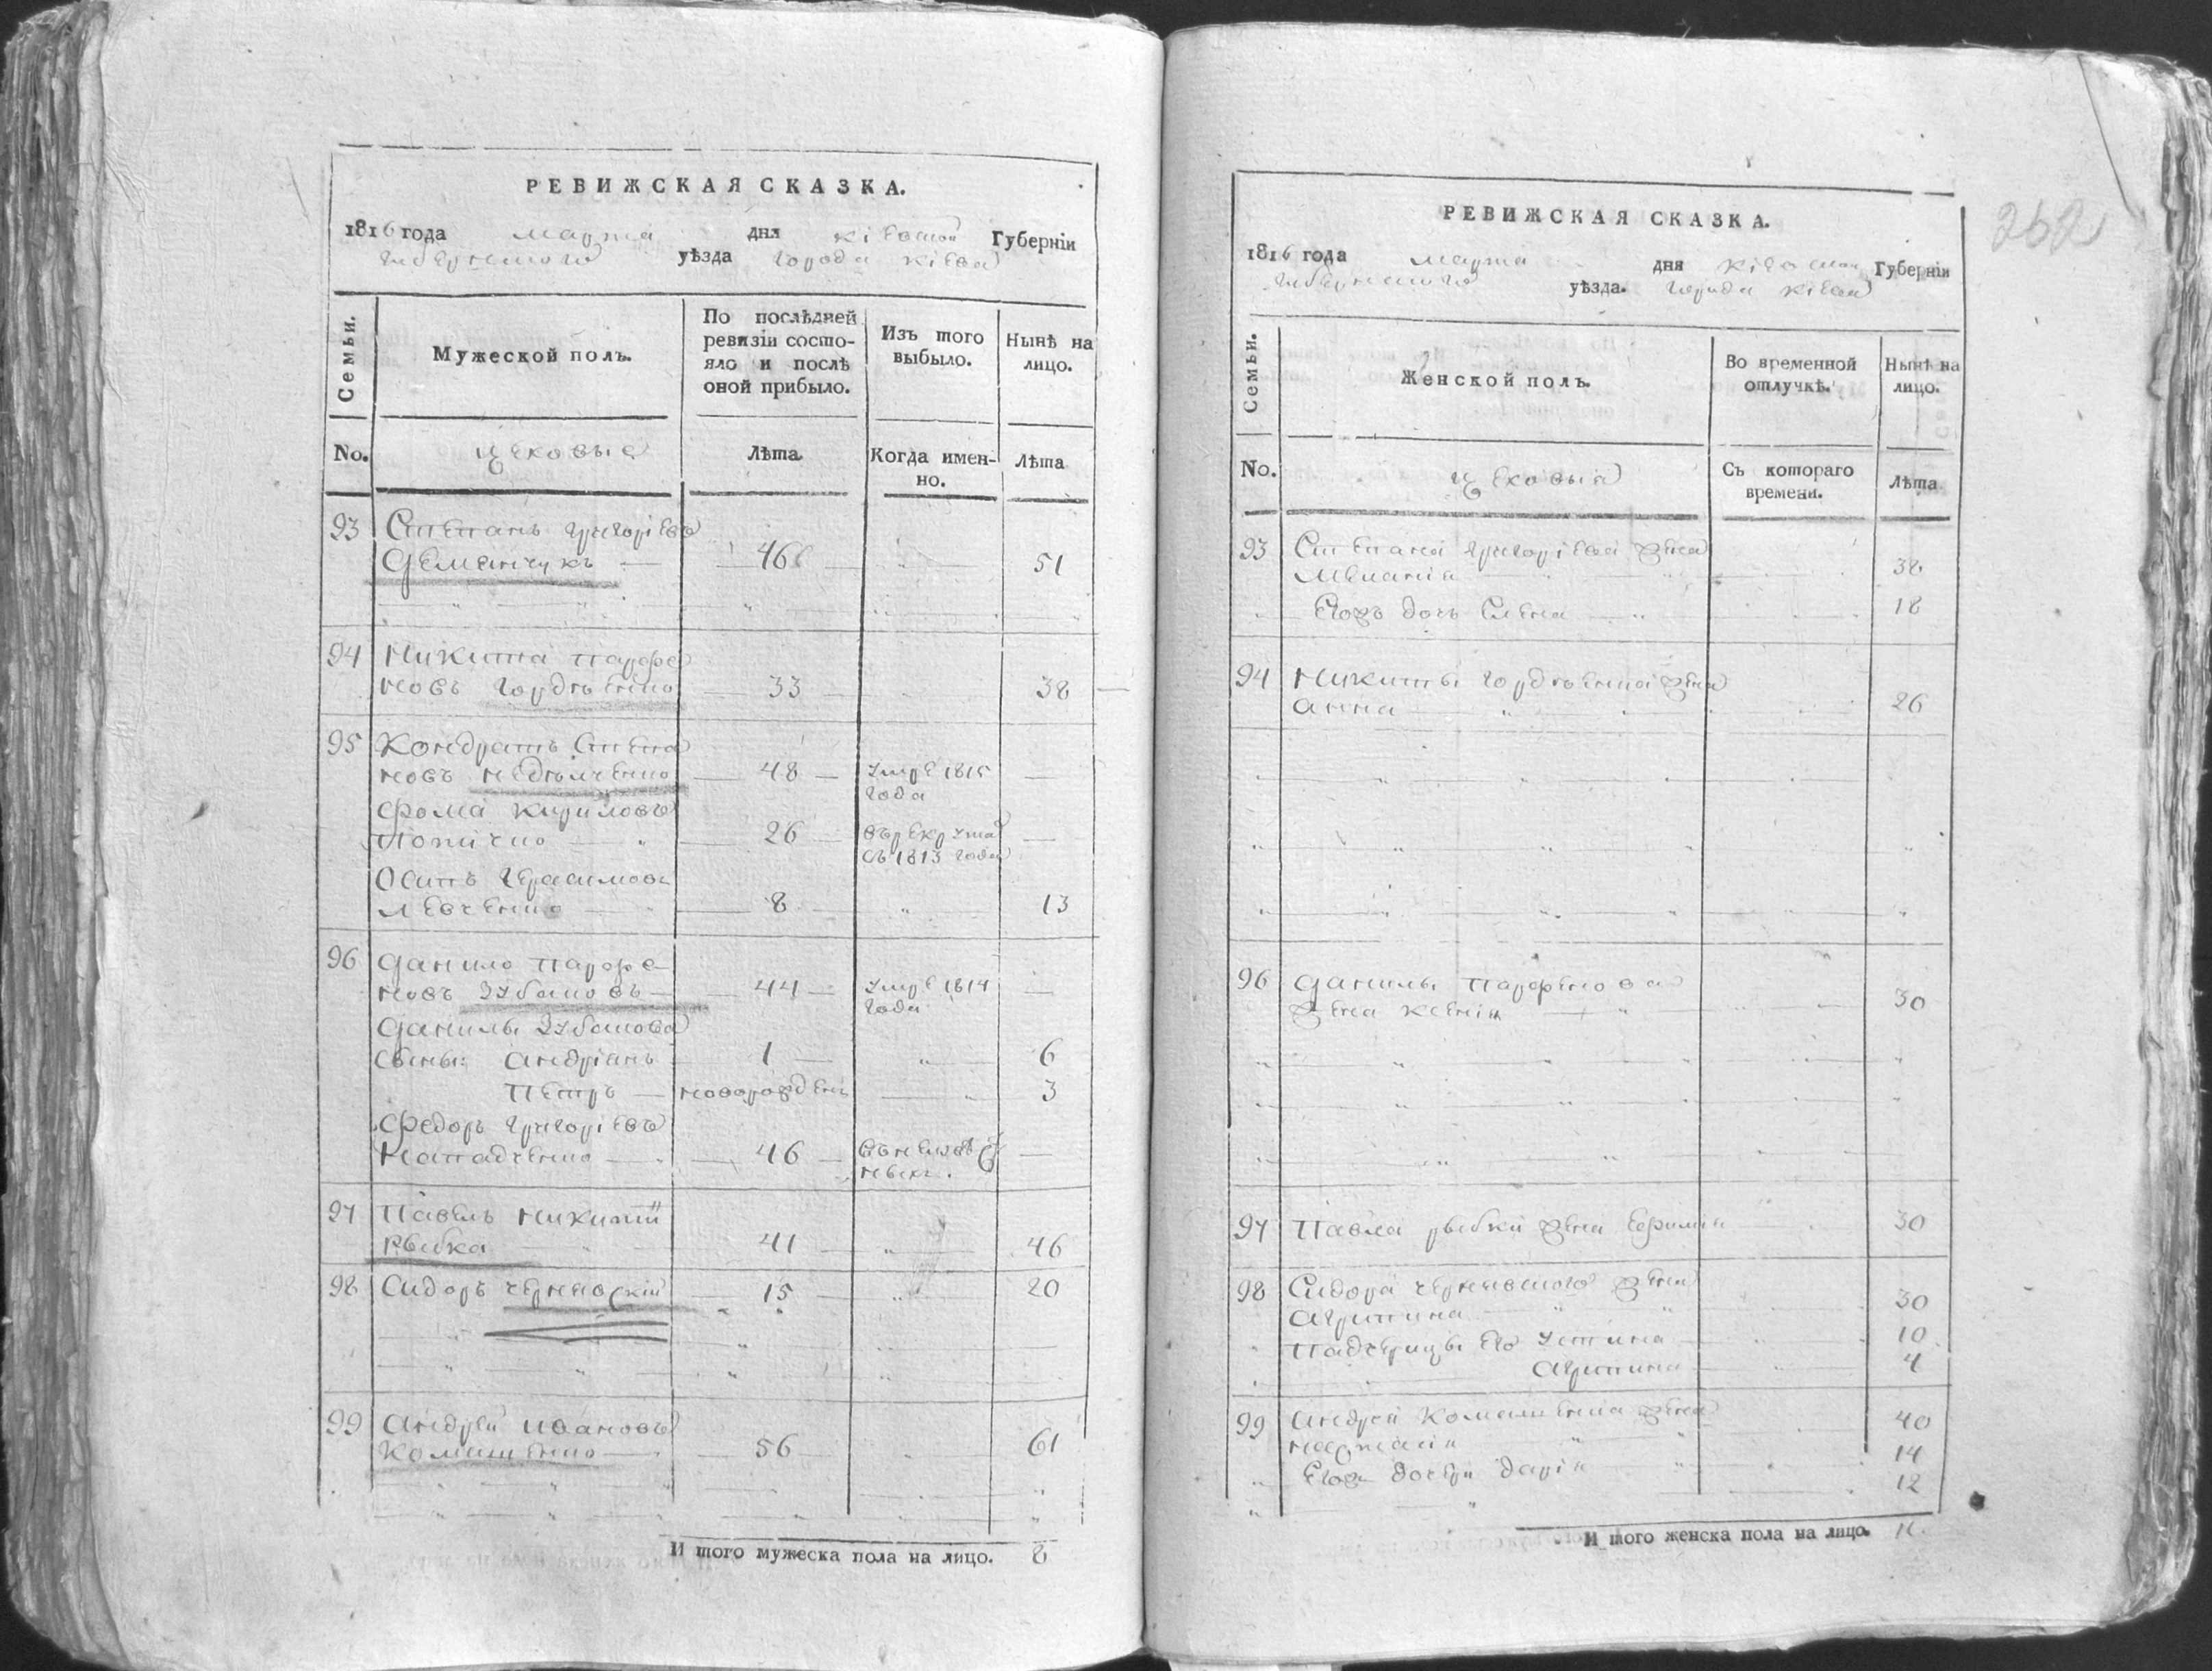 РЕВИЖСКАЯ СКАЗКА.
1816 года марта дня кіевской Губерніи
губернского уѣзда города кіева
Семьи.
Мужеской полъ.
По послѣдней ревизіи состояло и послѣ оной прибыло.
Изъ того выбыло.
Нынѣ на лицо.
No.
цеховые
Лѣта
Когда именно.
Лѣта
93 Степанъ григоріевъ
Деменчукъ 46 51
94 Никита парфе
новъ гордѣенко 33 38
95 Кондратъ Степа
новъ недѣлченко 48 умре 1815
года
Фома Кириловъ
26 въ рекрута
съ 1813 года
Осипъ герасимовъ
левченко 8 13
96 Данило парфе
новъ зубановъ 44 умре 1814
года
Данилы зубанова
сыны: Андріанъ 1 6
Петръ новорожденъ 3
Федоръ григоріевъ
46
97 Павелъ никитинъ
Рыбка 41 46
98 Сидоръ чернявскій 15 20
99 Андрей ивановъ
Комашенко 56 61
И того мужеска пола на лицо. 8
262
РЕВИЖСКАЯ СКАЗКА.
1816 года марта дня кіевской Губерніи
губернского уѣзда. города кіева
Семьи.
Женской полъ.
Во временной отлучкѣ.
Нынѣ на лицо.
No.
цеховыя
Съ котораго времени.
Лѣта
93 Степана григоріева жена
Меланія 38
Егожъ дочь Елена 18
94 Никиты гордѣенка жена
анна 26
96 Данилы парфенова
жена ксенія 30
97 Павла рыбки жена Ефимія 30
98 Сидора чернявского жена
агрипина 30
падчерицы его устина 10
агрипина 4
99 Андрея Комашенка жена 40
14
Егожъ дочери дарія 12
И того женска пола на лицо.